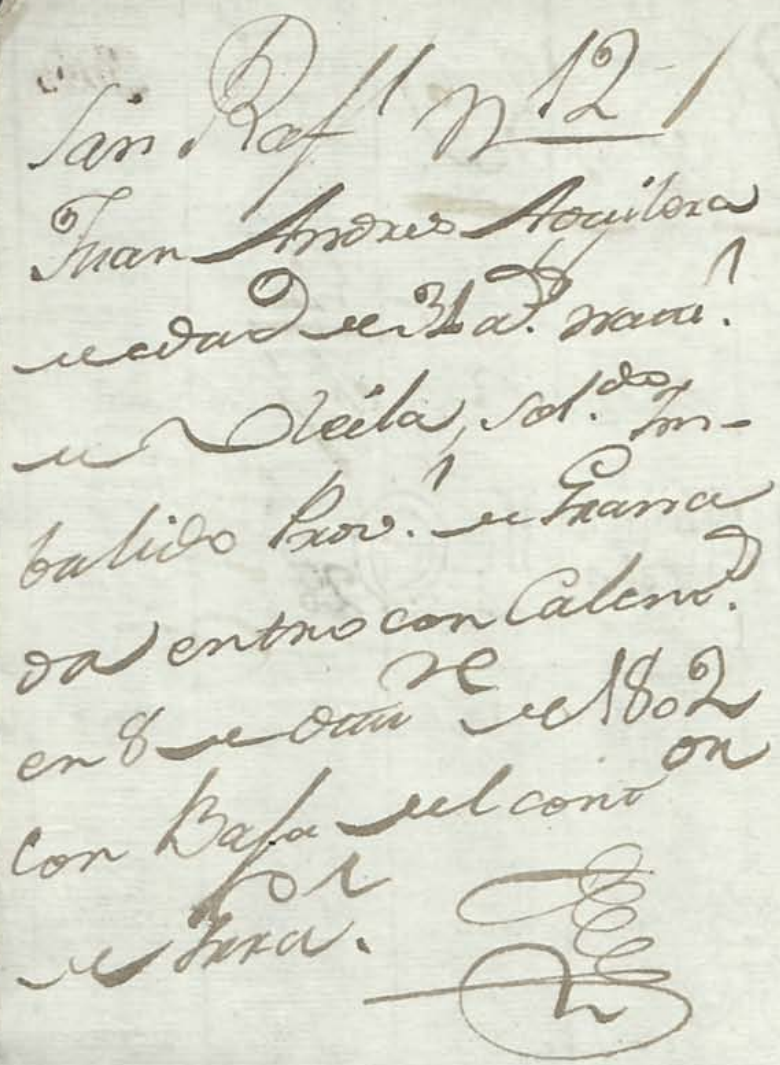 San Raf.l N 12
Juan Andres Aguilera
de edad de 31 a.s natu.l
de Avila, Sol.do In-
balido Prov.l de Grana
da entro con Calent.a
en 8 de Diz.re de 1802
con Bafa del con.on
de